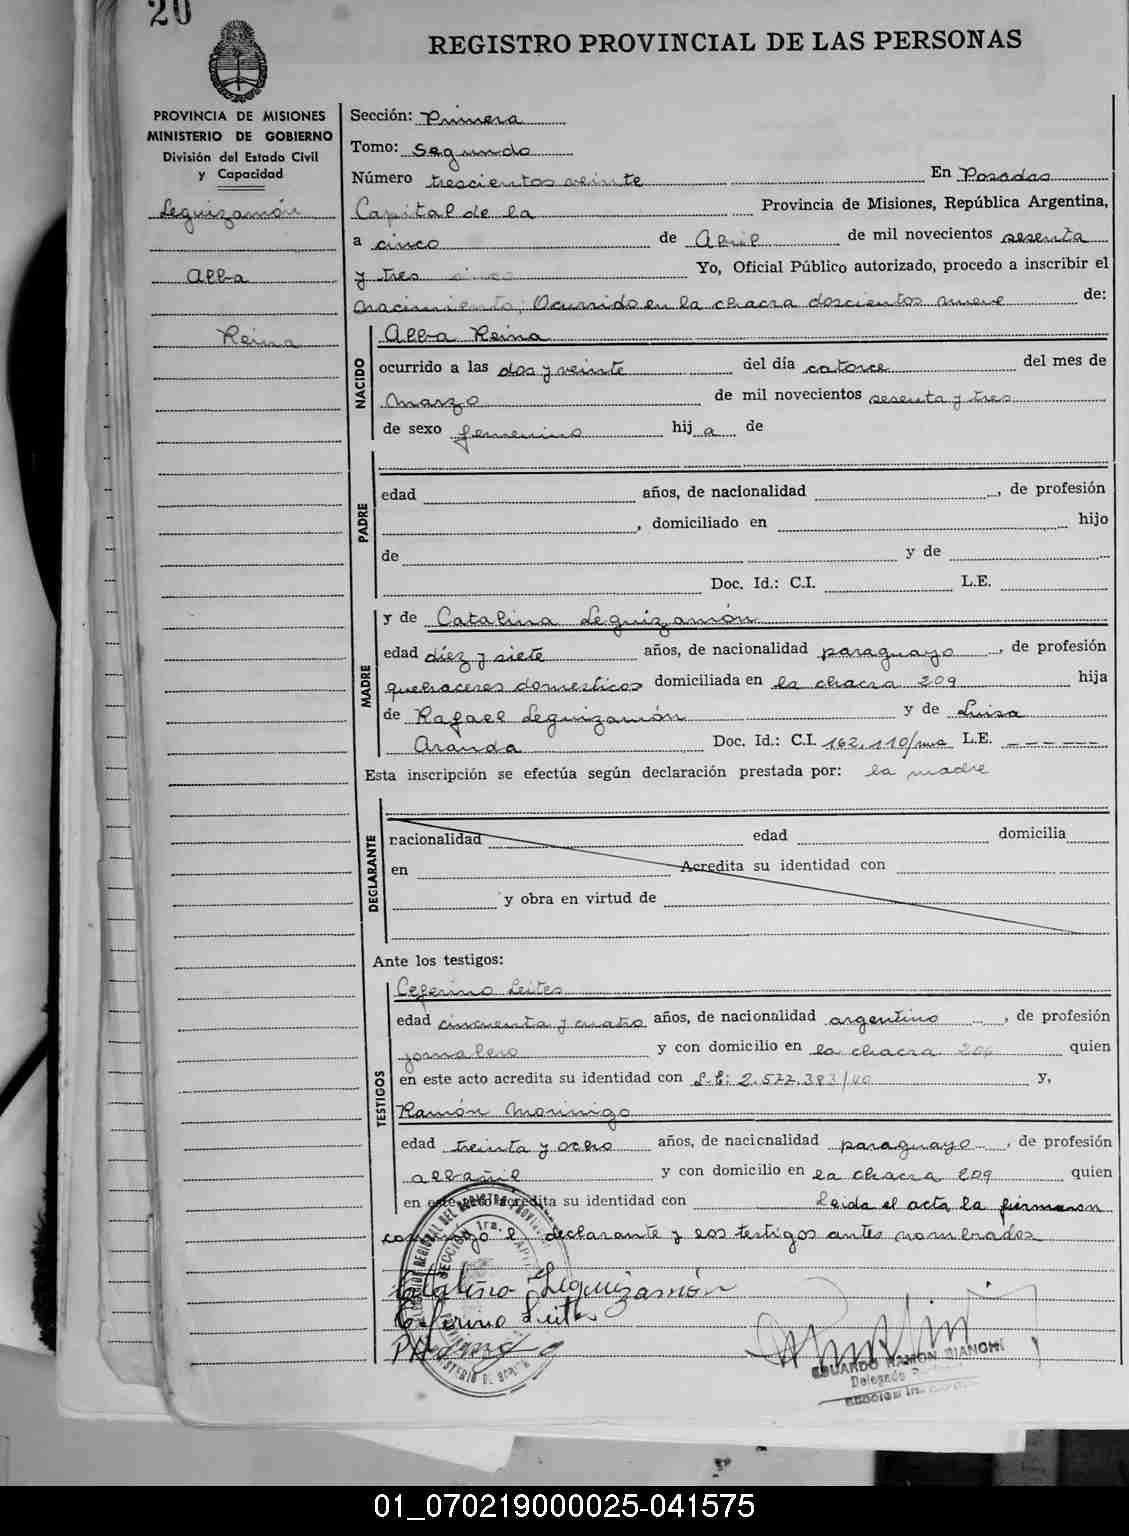 20
REGISTRO PROVINCIAL DE LAS PERSONAS
PROVINCIA DE MISIONES
MINISTERIO DE GOBIERNO
División del Estado Civil
y Capacidad
Leguizamón
Alba
Reina
Sección: Primera
Tomo: Segundo
Número trescientos veinte En Posadas
Capital de la Provincia de Misiones, República Argentina,
a cinco de Abril de mil novecientos sesenta
y tres Yo, Oficial Público autorizado, procedo a inscribir el
nacimiento; Ocurrido en la chacra doscientos nueve de:
NACIDO
Alba Reina
ocurrido a las dos y veinte del día catorce del mes de
Marzo de mil novecientos sesenta y tres
de sexo femenino hij a de
PADRE
edad años, de nacionalidad , de profesión
, domiciliado en hijo
de y de
Doc. Id.: C.I. L.E.
MADRE
y de Catalina Leguizamón
edad diez y siete años, de nacionalidad paraguayo , de profesión
quehaceres domesticos domiciliada en la chacra 209 hija
de Rafael Leguizamón y de Luisa
Aranda Doc. Id.: C.I. 162.110/mns L.E. – – – – –
Esta inscripción se efectúa según declaración prestada por: la madre
DECLARANTE
nacionalidad edad domicilia
en Acredita su identidad con
y obra en virtud de
Ante los testigos:
TESTIGOS
Ceferino Leites
edad cincuenta y cuatro años, de nacionalidad argentino , de profesión
jornalero y con domicilio en la chacra quien
en este acto acredita su identidad con L.E: 2.577.383 y,
Ramón Morinigo
edad treinta y ocho años, de nacionalidad paraguayo , de profesión
albañil y con domicilio en la chacra 209 quien
en este acto acredita su identidad con Leida el acta la firmaron
declarante y los testigos antes nombrados
Catalina Leguizamón
Ceferino Leites
EDUARDO RAMON BIANCHI
Delegado
01_070219000025-041575